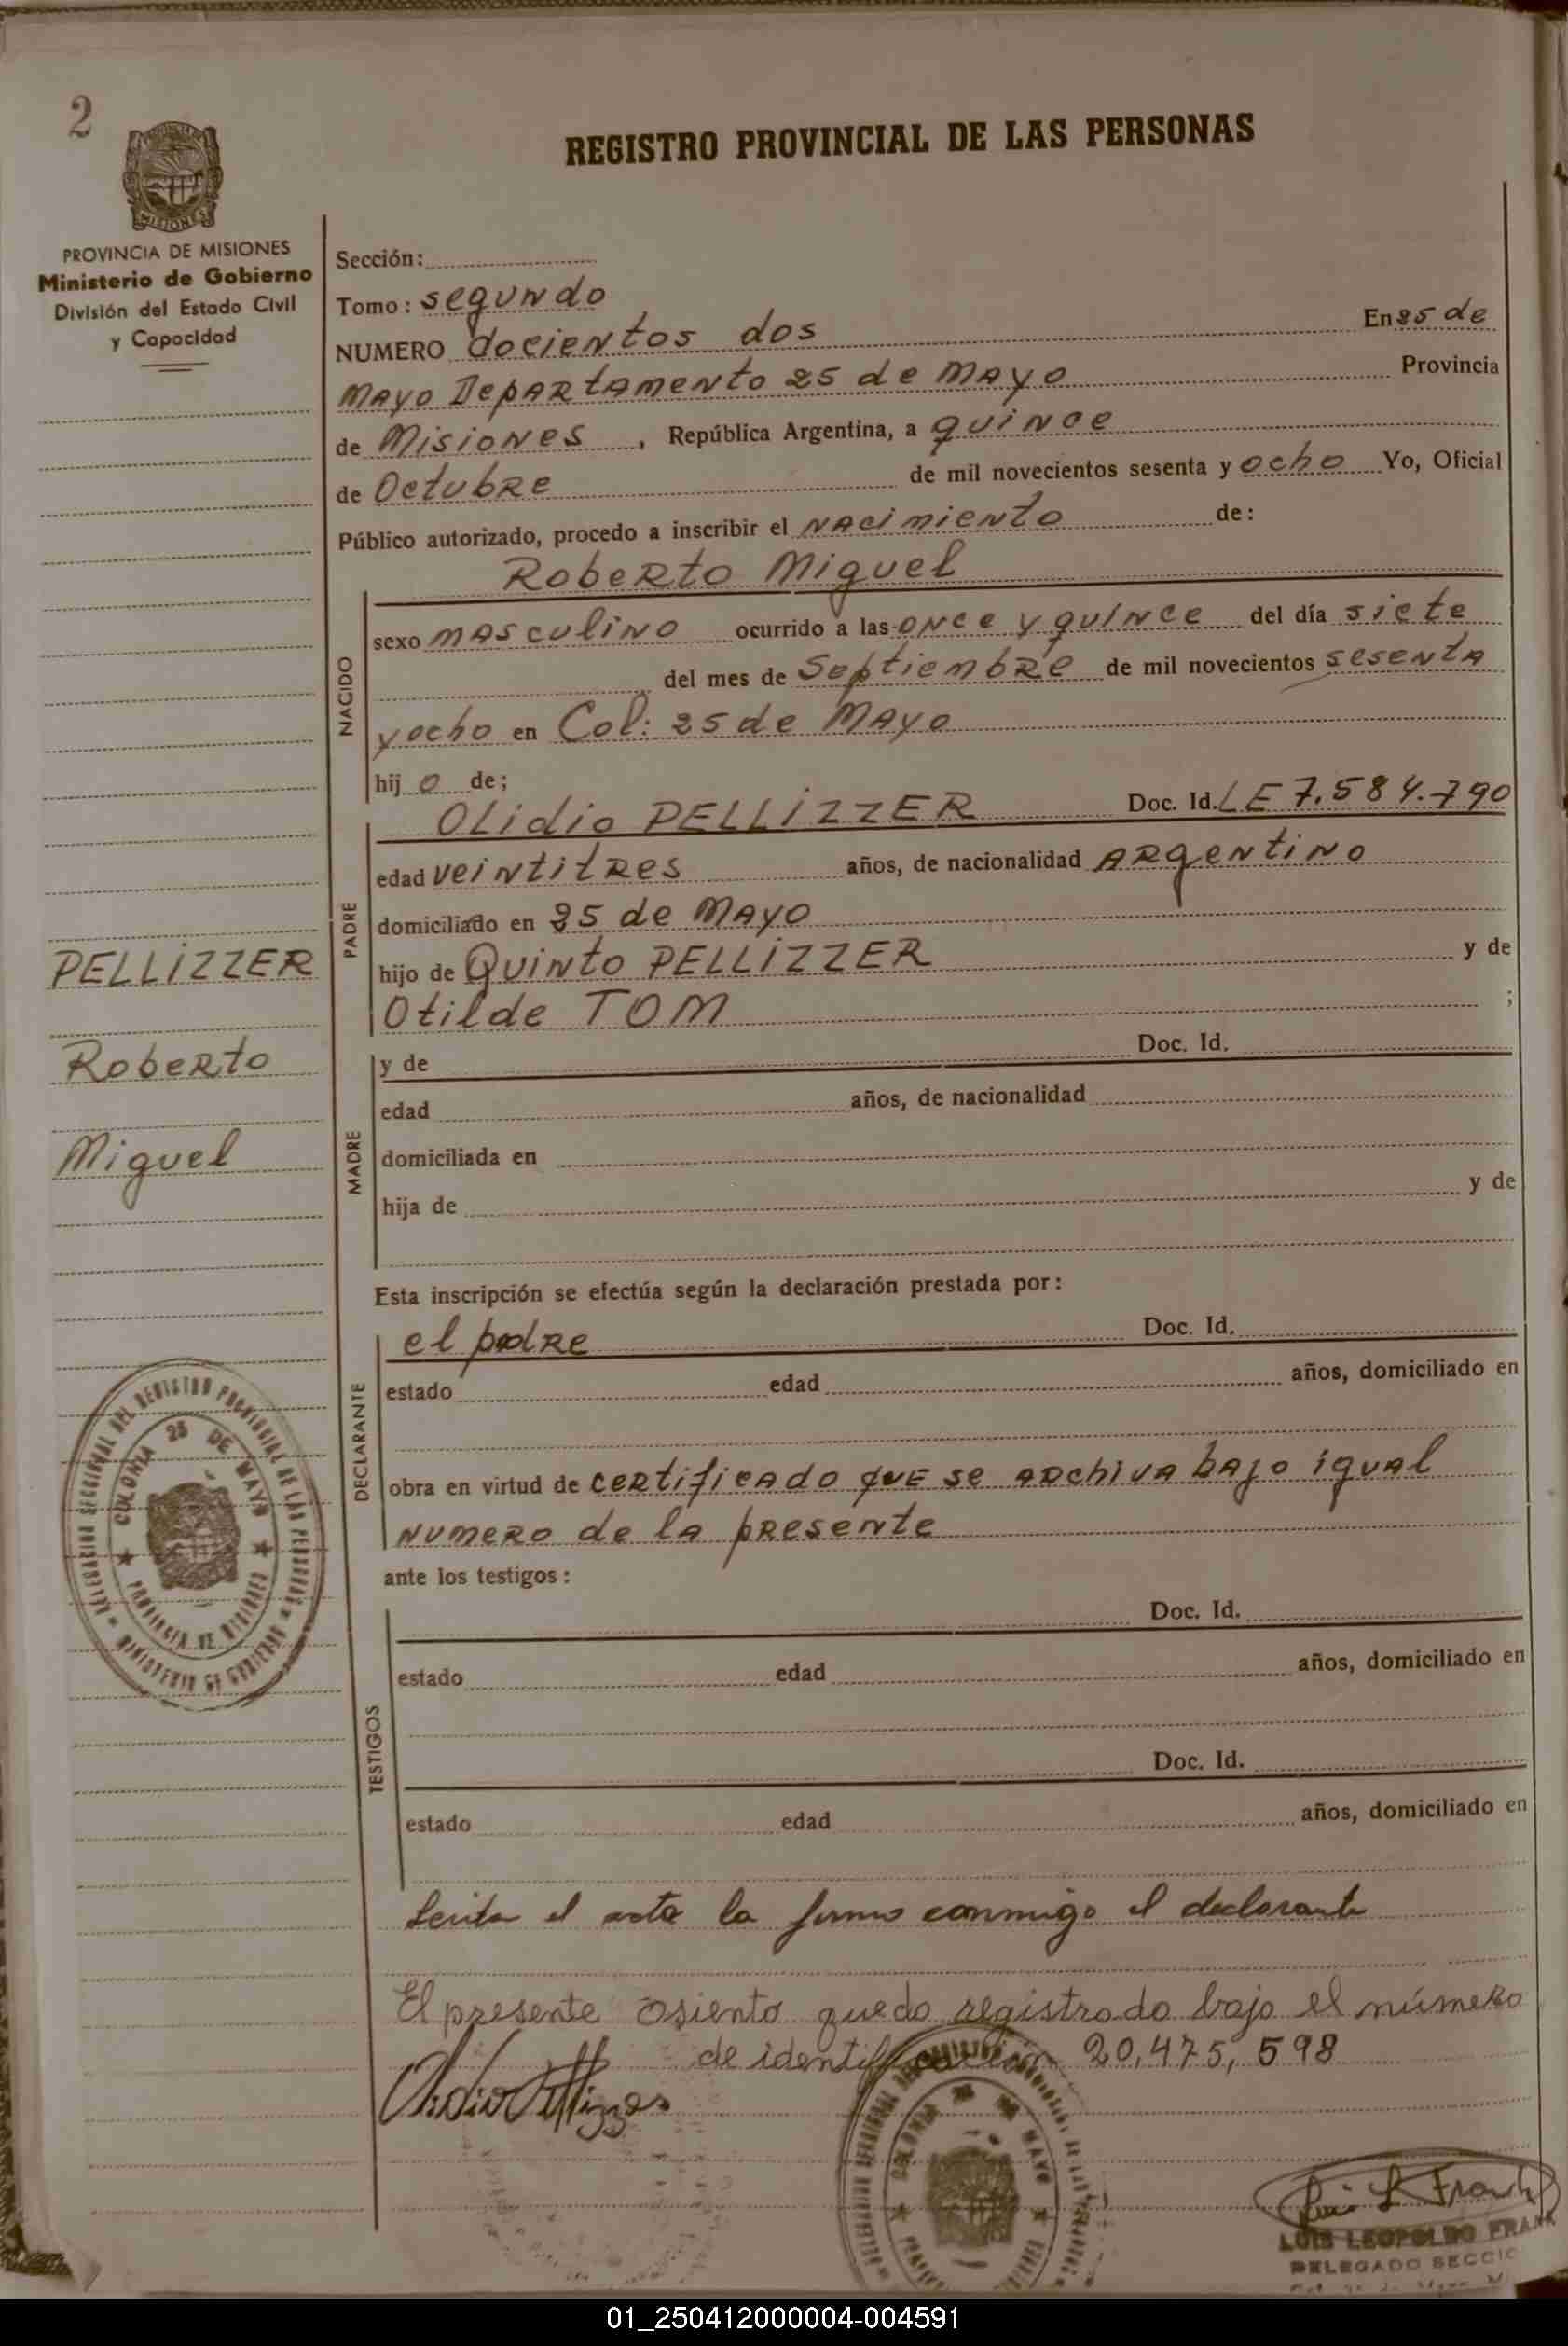 2
REGISTRO PROVINCIAL DE LAS PERSONAS
MISIONES
PROVINCIA DE MISIONES
Ministerio de Gobierno
División del Estado Civil
y Capacidad
Sección:
Tomo: segundo
NUMERO docientos dos En 25 de
Mayo Departamento 25 de Mayo Provincia
de Misiones, República Argentina, a quince
de Octubre de mil novecientos sesenta y ocho Yo, Oficial
Público autorizado, procedo a inscribir el nacimiento de:
Roberto Miguel
NACIDO
sexo masculino ocurrido a las once y quince del día siete
del mes de Septiembre de mil novecientos sesenta
y ocho en Col: 25 de Mayo
hijo de;
Olidio PELLIZZER Doc. Id. LE 7.584.790
PADRE
edad veintitres años, de nacionalidad Argentino
domiciliado en 25 de Mayo
hijo de Quinto PELLIZZER y de
Otilde TOM ;
PELLIZZER
Roberto
Miguel
MADRE
y de Doc. Id.
edad años, de nacionalidad
domiciliada en
hija de y de
Esta inscripción se efectúa según la declaración prestada por:
DECLARANTE
el padre Doc. Id.
estado edad años, domiciliado en
obra en virtud de certificado que se archiva bajo igual
numero de la presente
DELEGACION SECCIONAL DEL REGISTRO PROVINCIAL DE LAS PERSONAS
MINISTERIO DE GOBIERNO
COLONIA 25 DE MAYO
PROVINCIA DE MISIONES
ante los testigos:
TESTIGOS
Doc. Id.
estado edad años, domiciliado en
Doc. Id.
estado edad años, domiciliado en
Leida el acta la firma conmigo el declarante
El presente asiento queda registrado bajo el número
de identificacion 20,475,598
Olidio Pellizzer
COLONIA MAYO
Luis L Frank
LUIS LEOPOLDO FRANK
DELEGADO SECCIO
01_250412000004-004591